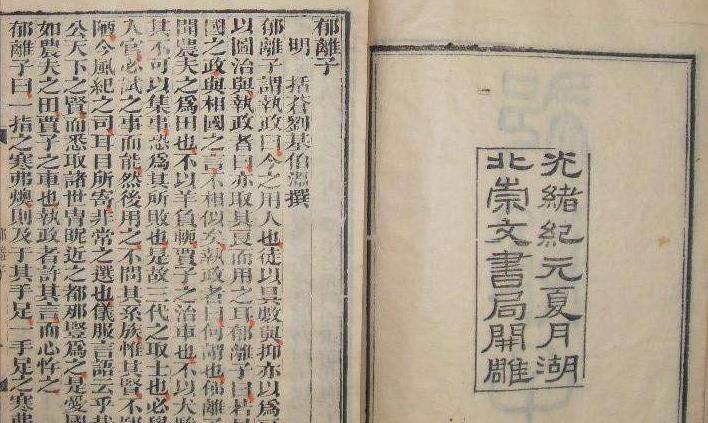 光緒紀元夏月湖
北崇文書局開雕
郁離子
明 括蒼劉基伯溫撰
郁離子謂執政曰今之用人也徒以具數與抑亦以爲
以圖治與執政者曰亦取其良而用之耳郁離子曰若
國之政與相國之言不相似矣執政者曰何謂也郁離子
聞農夫之爲田也不以羊負軛賈子之治車也不以
其不可以集事恐爲其所敗也是故三代之取士也必學
入官必試之事而能然後用之不問其系族惟其賢不
陋今風紀之司耳目所寄非常之選也儀服言語云乎哉
公天下之賢而悉取諸世胄昵近之都那豎爲之是愛國
如農夫之田賈子之車也執政者許其言而心忤之
郁離子曰一指之寒弗燠則及于其手足一手足之寒弗